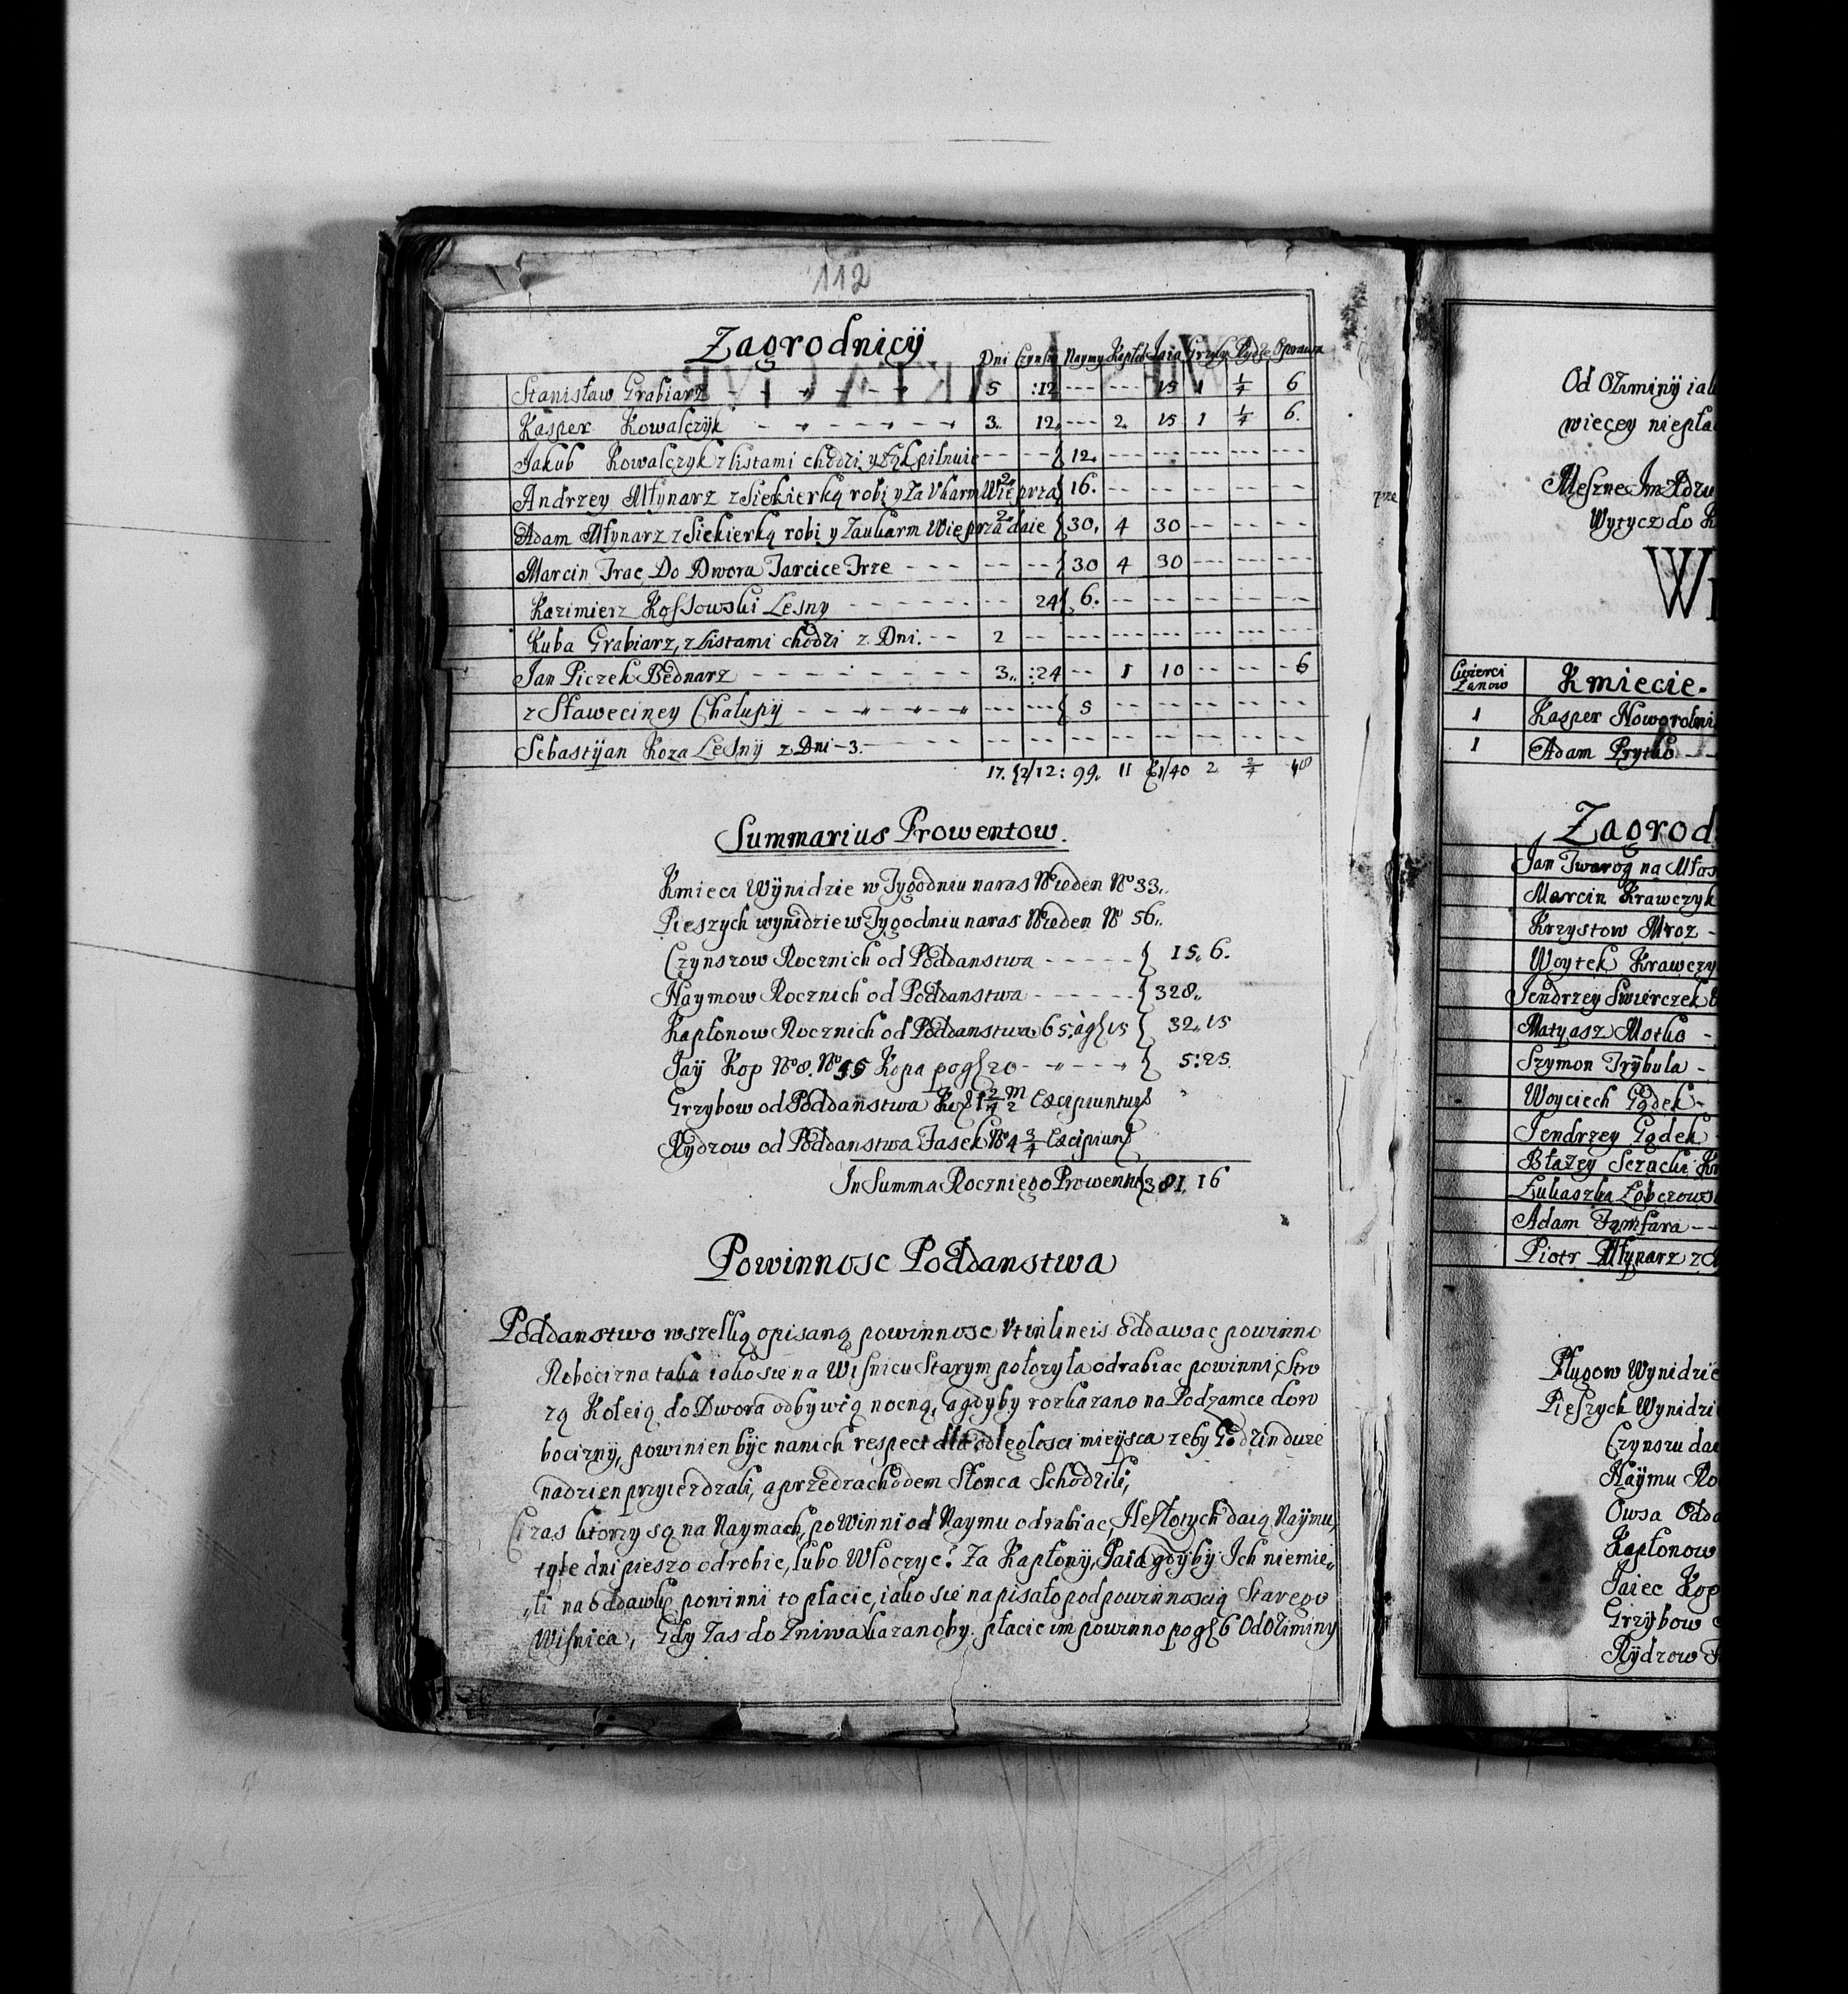 112
Zagrodnicÿ Dni Czynsz Naymy Kapłó Jaia Grzyby Rydze Oprawa
Stanisław Grabiarz 5 :12 --- --- 15 1 1/4 6
Kasper Kowalczyk 3. 12. --- 2. 15 1 1/4 6.
Jakub Kowalczyk z listami chodzi y Łąk pilnuie --- --- { 12. --- --- --- --- ---
Andrzey Młynarz z Siekierką robi y Za Ukarm 2 Wieprza { 16. -- -- -- -- --
Adam Młynarz z Siekierką robi y Zaukarm Wieprza 2 daie { 30. 4 30 -- -- --
Marcin Trac, Do Dwora Tarcice Trze --- --- --- { 30 4 30 --- --- ---
Kazimierz Kossowski Lesny --- -- 24 { 6. -- -- -- -- --
Kuba Grabiarz, z Listami chodzi z. Dni. -- 2 -- --- --- --- --- --- ---
Jan Piczek Bednarz 3.. :24 -- 1 10 -- -- - 6
z Sławeciney Chałupÿ --- --- { 5 -- -- -- -- --
Sebastÿan Koza Lesnÿ z Dni - 3. -- -- -- -- -- -- -- --
17. {2/12: 99. 11 {1/40 2. 2/4 18
Summarius Prowentow.
Kmieci Wÿnidzie w Tygodniu naras Wieden No 33..
Pieszych wynidzie w Tygodniu naras Wieden No 56..
Czynszow Rocznich od Poddanstwa ----- { 15. 6.
Naymow Rocznich od Poddanstwa ------ { 328..
Kapłonow Rocznich od Poddanstwa 65. à g{ 15 { 32. 15
Jaÿ Kop No 8. No 55 Kopa po g{ 20 - - - - { 5:25.
Grzybow od Poddanstwa Excipiuntur
Rydzow od Poddanstwa Fasek No 4 3/4 Excipiun{
In Summa Roczniego Prowentu {381. 16
Powinnosc Poddanstwa
Poddanstwo wszelką opisaną powinnosc Ut in lineis oddawac powinno
Robocizna taka iako sie na Wisnicu Starym położyła odrabiac powinni, Stro
zą Koleią do Dwora odbywią nocną, a gdyby rozkazano na Podzamce doro
bociznÿ, powinien bÿc nanich respect dla odległosci mieÿsca zeby Godzin duże
na dzien przyiezdzali, a przed zachodem Słonca Schodzili,
Czas ktorzy są na Naymach, poWinni od Naymu odrabiac, Ile złotych daią Naÿmu,
tyłe dni pieszo odrobic, lubo Włoczyc: Za Kapłonÿ, Jaia gdyby Ich niemie„
„li na oddawke powinni to płacic, iako sie napisało pod powinnoscią Starego
Wisnica, Gdy Zas do Zniwa kazanoby. płacic im powinno po g{ 6 Od Oziminy
Od Oziminÿ iak
wiecey niepła
Meszne Im Xdzu
Wytycz do K
WI
Cwierci
Łanow Kmiecie.
1 Kasper Noworolni
1 Adam Prytko
Zagrod
Jan Twarog na Młos
Marcin Krawczyk
Krzystow Mroz -
Woytek Krawczy
Jendrzey Swierczek
Matyasz Motka -
Szymon Trÿbula -
Woyciech Gądek -
Jendrzey Gądek
Błażey Szrachi Kr
Łukaszka Łobczows
Adam Fąmfara --
Piotr Młynarz z
Pługow Wynidzie
Pieszych Wynidzi
Czynszu da
Naÿmu Ro
Owsa Odda
Kapłonow
Jaiec Kop
Grzÿbow
Rÿdzow F